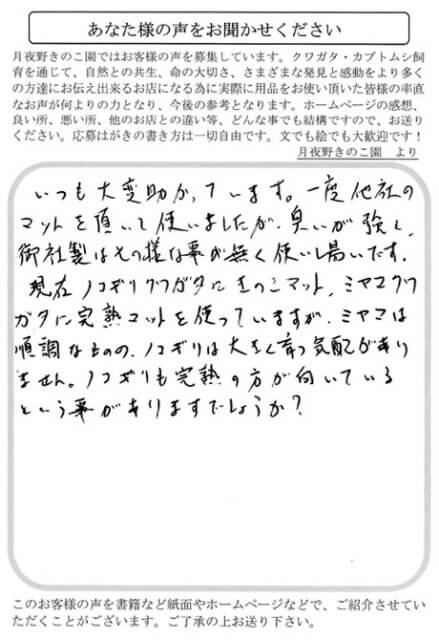 あなた様の声をお聞かせください
月夜野きのこ園ではお客様の声を募集しています。クワガタ・カブトムシ飼
育を通じて、自然との共生、命の大切さ、さまざまな発見と感動をより多く
の方達にお伝え出来るお店になる為に実際に用品をお使い頂いた皆様の率直
なお声が何よりの力となり、今後の参考となります。ホームページの感想、
良い所、悪い所、他のお店との違い等、どんな事でも結構ですので、お送り
ください。応募はがきの書き方は一切自由です。文でも絵でも大歓迎です！
月夜野きのこ園　より
いつも大変助かっています。一度他社の
マットを頂いて使いましたが、臭いが強く、
御社製はその様な事が無く使いし易いです。
現在ノコギリクワガタにきのこマット、ミヤマクワ
ガタに完熟マットを使っていますが、ミヤマは
順調なものの、ノコギリは大きく育つ気配があり
ません。ノコギリも完熟の方が向いている
という事がありますでしょうか？
このお客様の声を書籍など紙面やホームページなどで、ご紹介させてい
ただくことがございます。ご了承の上お送り下さい。